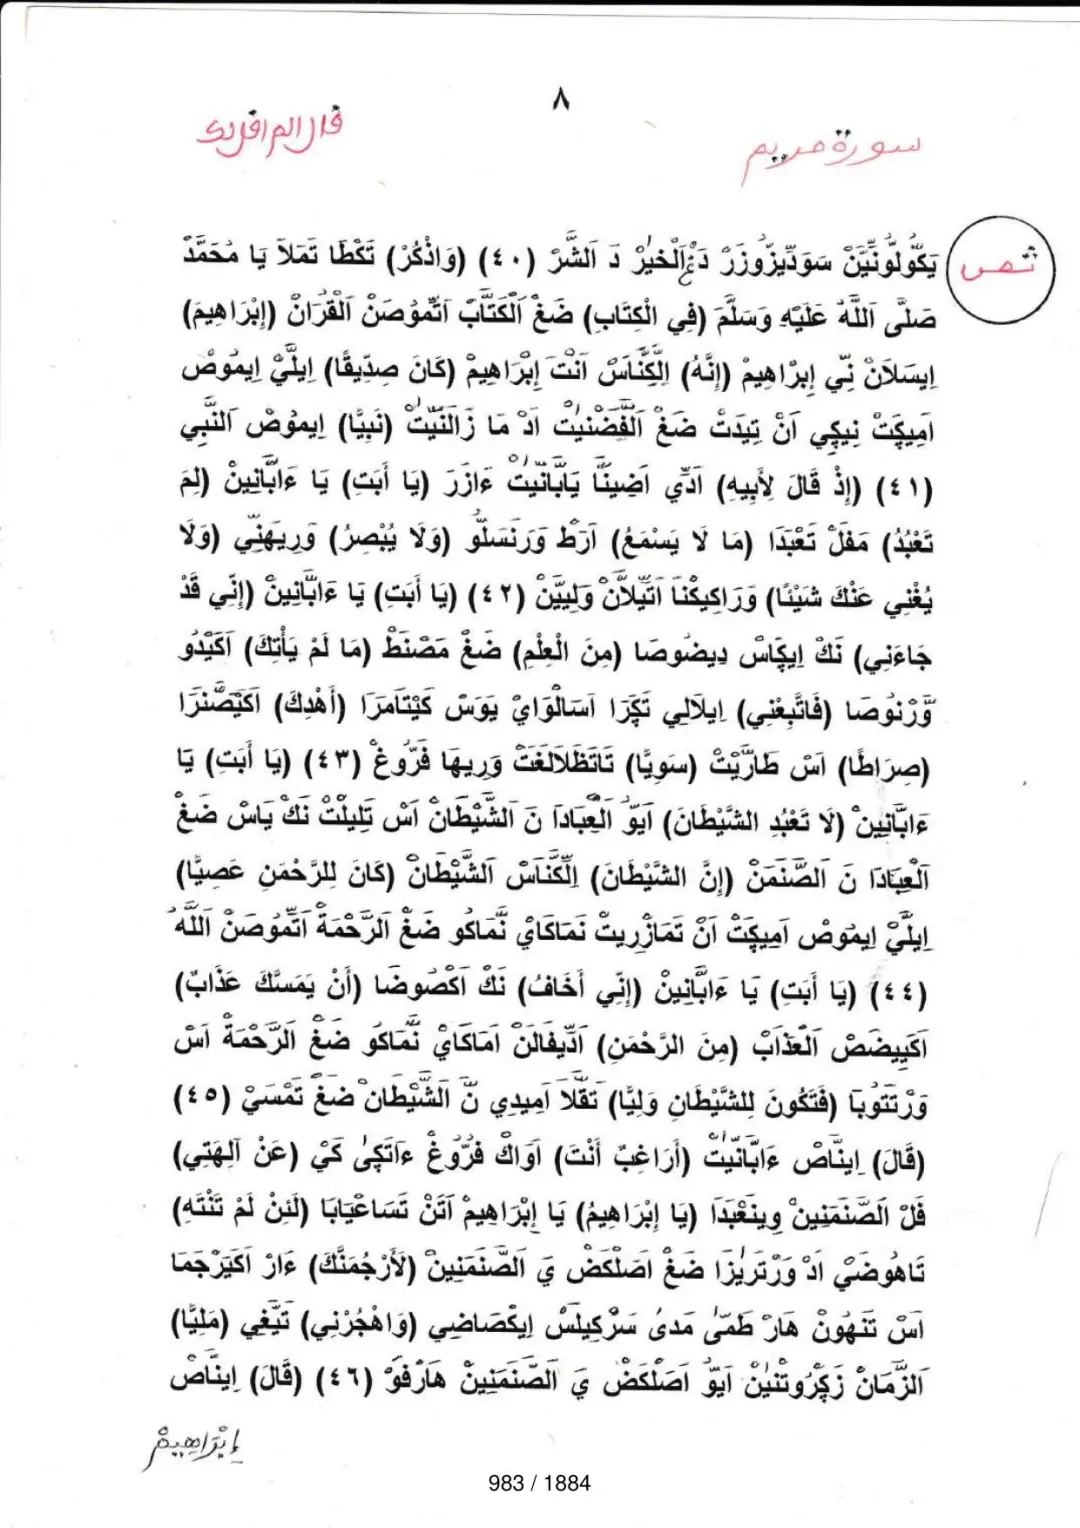 ٨
سورة مريم
قال الم اقل لك
ثمن
يَكُولُونِّيَنْ سَوَدِّيزُوزَرْ دَغْ اَلْخَيْرْ دَ اَلشَّرْ (٤٠) (وَاذْكُرْ) تَكْطَا تَمَلَا يَا مُحَمَّدْ
صَلَّى اَللَّهُ عَلَيْهِ وَسَلَّمَ (فِي الْكِتَابِ) ضَغْ اَلْكَتَّابْ اَتَّمُوصَنْ اَلْقُرَانْ (إِبْرَاهِيمَ)
اِيسَلَانْ نِّي إِبْرَاهِيمْ (إِنَّهُ) اِلَّكْنَاسْ اَنْتْ إِبْرَاهِيمْ (كَانَ صِدِّيقًا) اِيلَيْ اِيمُوصْ
اَمِيكَتْ نِيكِي اَنْ تِيدَتْ ضَغْ اَلْقَضْنِيتْ اَدْ مَا زَالَنِّيتْ (نَبِيًّا) اِيمُوصْ اَلنَّبِي
(٤١) (إِذْ قَالَ لِأَبِيهِ) اَدِّي اَضِينَّا يَابَّانِّيتْ ءَازَرَ (يَا أَبَتِ) يَا ءَابَّانِينْ (لِمَ
تَعْبُدُ) مَفَلْ تَعْبَدَا (مَا لَا يَسْمَعُ) اَرَطْ وَرَنْسَلُّو (وَلَا يُبْصِرُ) وَرِيهَنِّي (وَلَا
يُغْنِي عَنْكَ شَيْئًا) وَرَاكِيكْنَا اَتِّيلَانْ وَلِيَيَّنْ (٤٢) (يَا أَبَتِ) يَا ءَابَّانِينْ (إِنِّي قَدْ
جَاءَنِي) نَكْ اِيكَّاسْ دِيضُوصَا (مِنَ الْعِلْمِ) ضَغْ مَصْنَطْ (مَا لَمْ يَأْتِكَ) اَكَيْدُو
وَّرْنُوصَا (فَاتَّبِعْنِي) اِيلَالِي تَكَرَا اَسَالْوَايْ يَوَسْ كَيْتَامَرَا (أَهْدِكَ) اَكَيَصَّنَرَا
(صِرَاطًا) اَسْ طَارَيْتْ (سَوِيًّا) تَاتَظَلَالَغَتْ وَرِيهَا فَرُّوغْ (٤٣) (يَا أَبَتِ) يَا
ءَابَّانِينْ (لَا تَعْبُدِ الشَّيْطَانَ) اَيَوَّ اَلْعِبَادَا نَ اَلشَّيْطَانْ اَسْ تَلِيلَتْ نَكْ يَاسْ ضَغْ
اَلْعِبَادَا نَ اَلصَّنَمَنْ (إِنَّ الشَّيْطَانَ) اِلَّكْنَاسْ اَلشَّيْطَانْ (كَانَ لِلرَّحْمَنِ عَصِيًّا)
اِيلَيْ اِيمُوصْ اَمِيكَتْ اَنْ تَمَازْرِيتْ نَمَاكَايْ نَّمَاكُو ضَغْ اَلرَّحْمَةْ اَتَّمُوصَنْ اَللَّهُ
(٤٤) (يَا أَبَتِ) يَا ءَابَّانِينْ (إِنِّي أَخَافُ) نَكْ اَكْصُوضَا (أَنْ يَمَسَّكَ عَذَابٌ)
اَكَيِيضَصْ اَلْعَذَابْ (مِنَ الرَّحْمَنِ) اَدِّيفَالَنْ اَمَاكَايْ نَّمَاكُو ضَغْ اَلرَّحْمَةْ اَسْ
وَرْتَتُوبَا (فَتَكُونَ لِلشَّيْطَانِ وَلِيًّا) تَقَّلَا اَمِيدِي نَّ اَلشَّيْطَانْ ضَغْ تَمْسَيْ (٤٥)
(قَالَ) اِينَّاصْ ءَابَّانِّيتْ (أَرَاغِبٌ أَنْتَ) اَوَاكْ فَرُّوغْ ءَاتَكِى كَيْ (عَنْ آلِهَتِي)
فَلْ اَلصَّنَمَنِينْ وِينَعْبَدَا (يَا إِبْرَاهِيمُ) يَا إِبْرَاهِيمْ اَتَنْ تَسَاعْيَابَا (لَئِنْ لَمْ تَنْتَهِ)
تَاهُوضَيْ اَدْ وَرْتَرِيْزَا ضَغْ اَصَلْكَضْ يَ اَلصَّنَمَنِينْ (لَأَرْجُمَنَّكَ) ءَارْ اَكَيَرْجَمَا
اَسْ تَنْهُونْ هَارْ طَمَّى مَدَى سَرْكِيلَسْ اِيكْصَاضِي (وَاهْجُرْنِي) تَيَّغِي (مَلِيًّا)
اَلزَّمَانْ زَكَّرُوتْنِينْ اَيَوَّ اَصَلْكَضْ يَ اَلصَّنَمَنِينْ هَارْفَوْ (٤٦) (قَالَ) اِينَّاصْ
إِبْرَاهِيمْ
983 / 1884